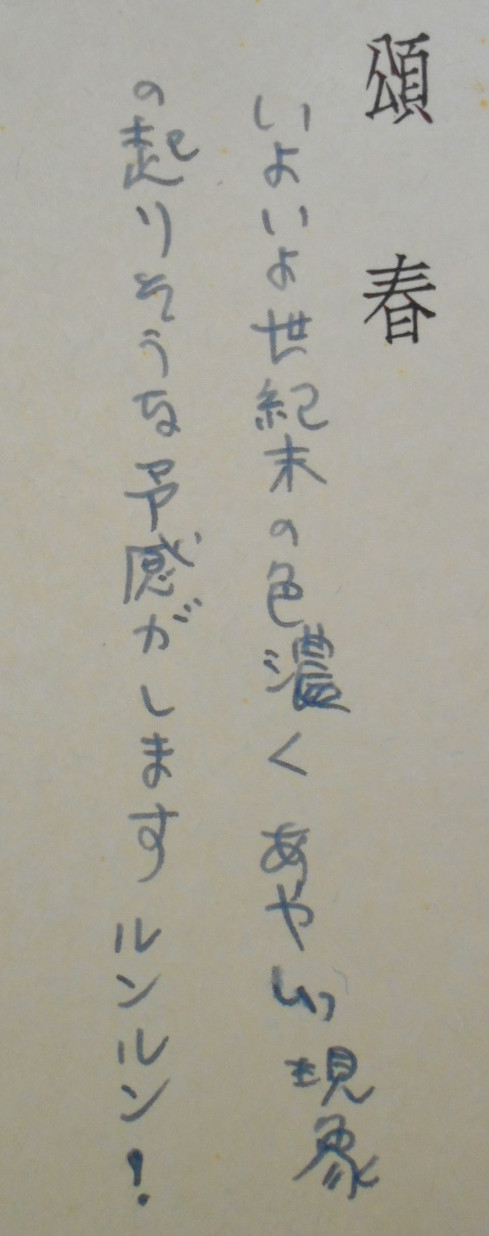 頌春
いよいよ世紀末の色濃く あやしい現象
の起りそうな予感がします ルンルン!